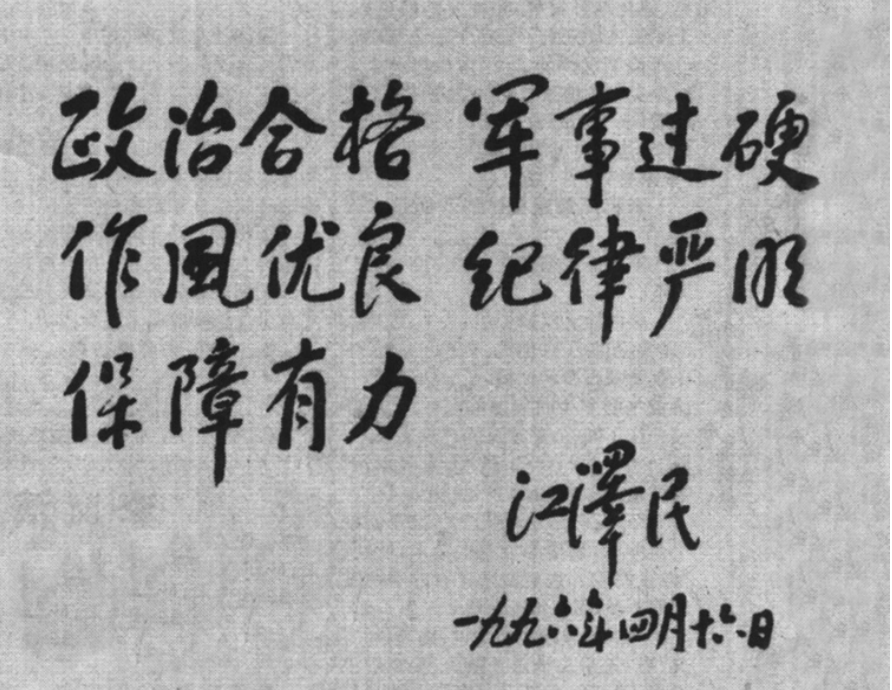 政治合格 军事过硬
作风优良 纪律严明
保障有力
江澤民
一九九六年四月十六日